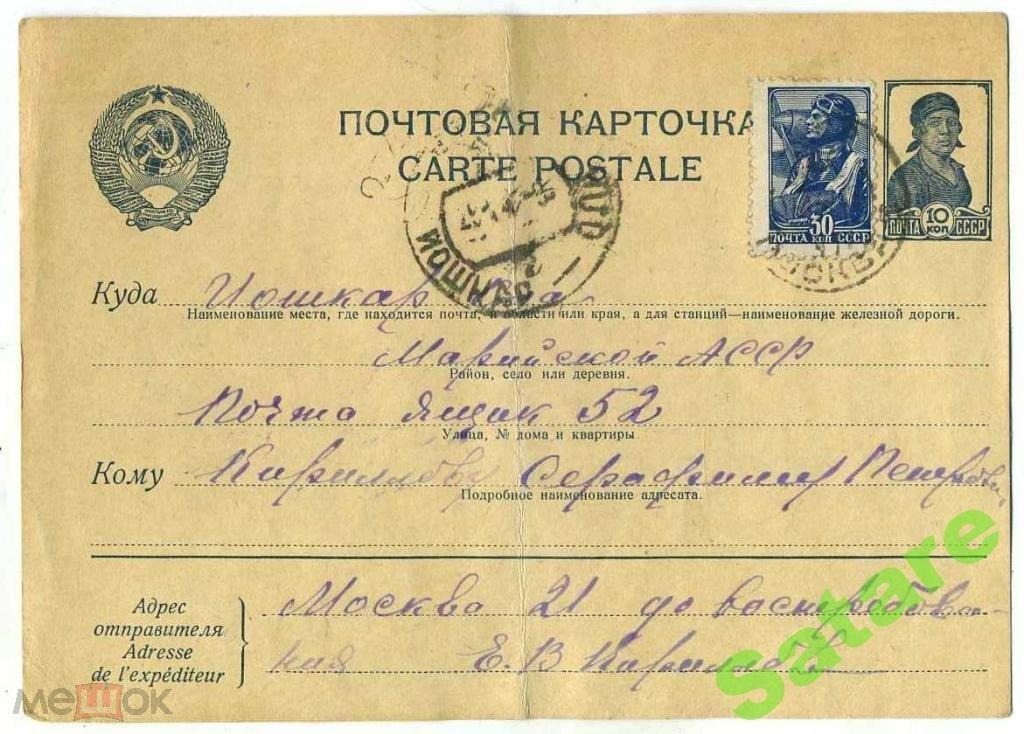 ПОЧТОВАЯ КАРТОЧКА
CARTE POSTALE
30
ПОЧТА КОП СССР
10
КОП
ПОЧТА СССР
МОСКВА
Куда Иошкар Ола
Наименование места, где находится почта, и области или края, а для станций—наименование железной дороги.
Марийской АССР
Район, село или деревня.
Почта ящик 52
Улица, № дома и квартиры
Кому Кириллову Серафиму Петрович
Подробное наименование адресата.
Адрес
отправителя
Adresse
de l'expéditeur
Москва 21 до востребован-
ния Е. В Кириллов
Satare
МЕШОК